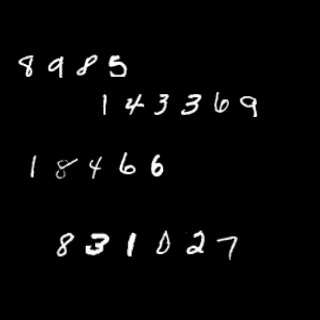 8985
143369
18466
831027